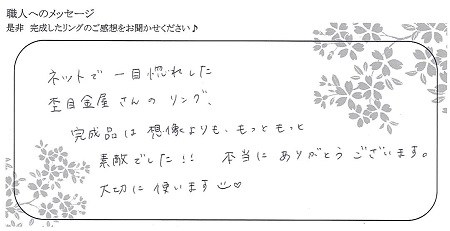 職人へのメッセージ
是非 完成したリングのご感想をお聞かせください♪
ネットで一目惚れした
杢目金屋さんのリング、
完成品は想像よりも、もっともっと
素敵でした!! 本当にありがとうございます。
大切に使います